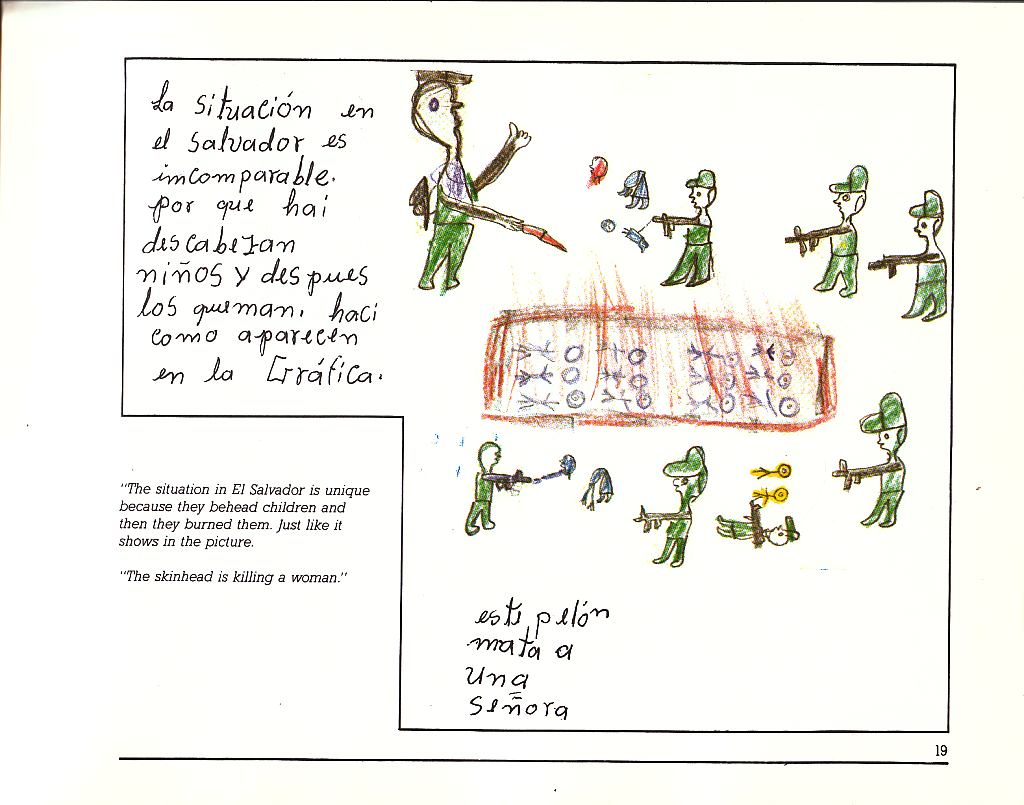 La situación en
el Salvador es
imcomparable.
por que hai
descabezan
niños y despues
los queman. haci
como aparecen
en la Gráfica.
"The situation in El Salvador is unique
because they behead children and
then they burned them. Just like it
shows in the picture.
"The skinhead is killing a woman."
este pelón
mata a
una
señora
19